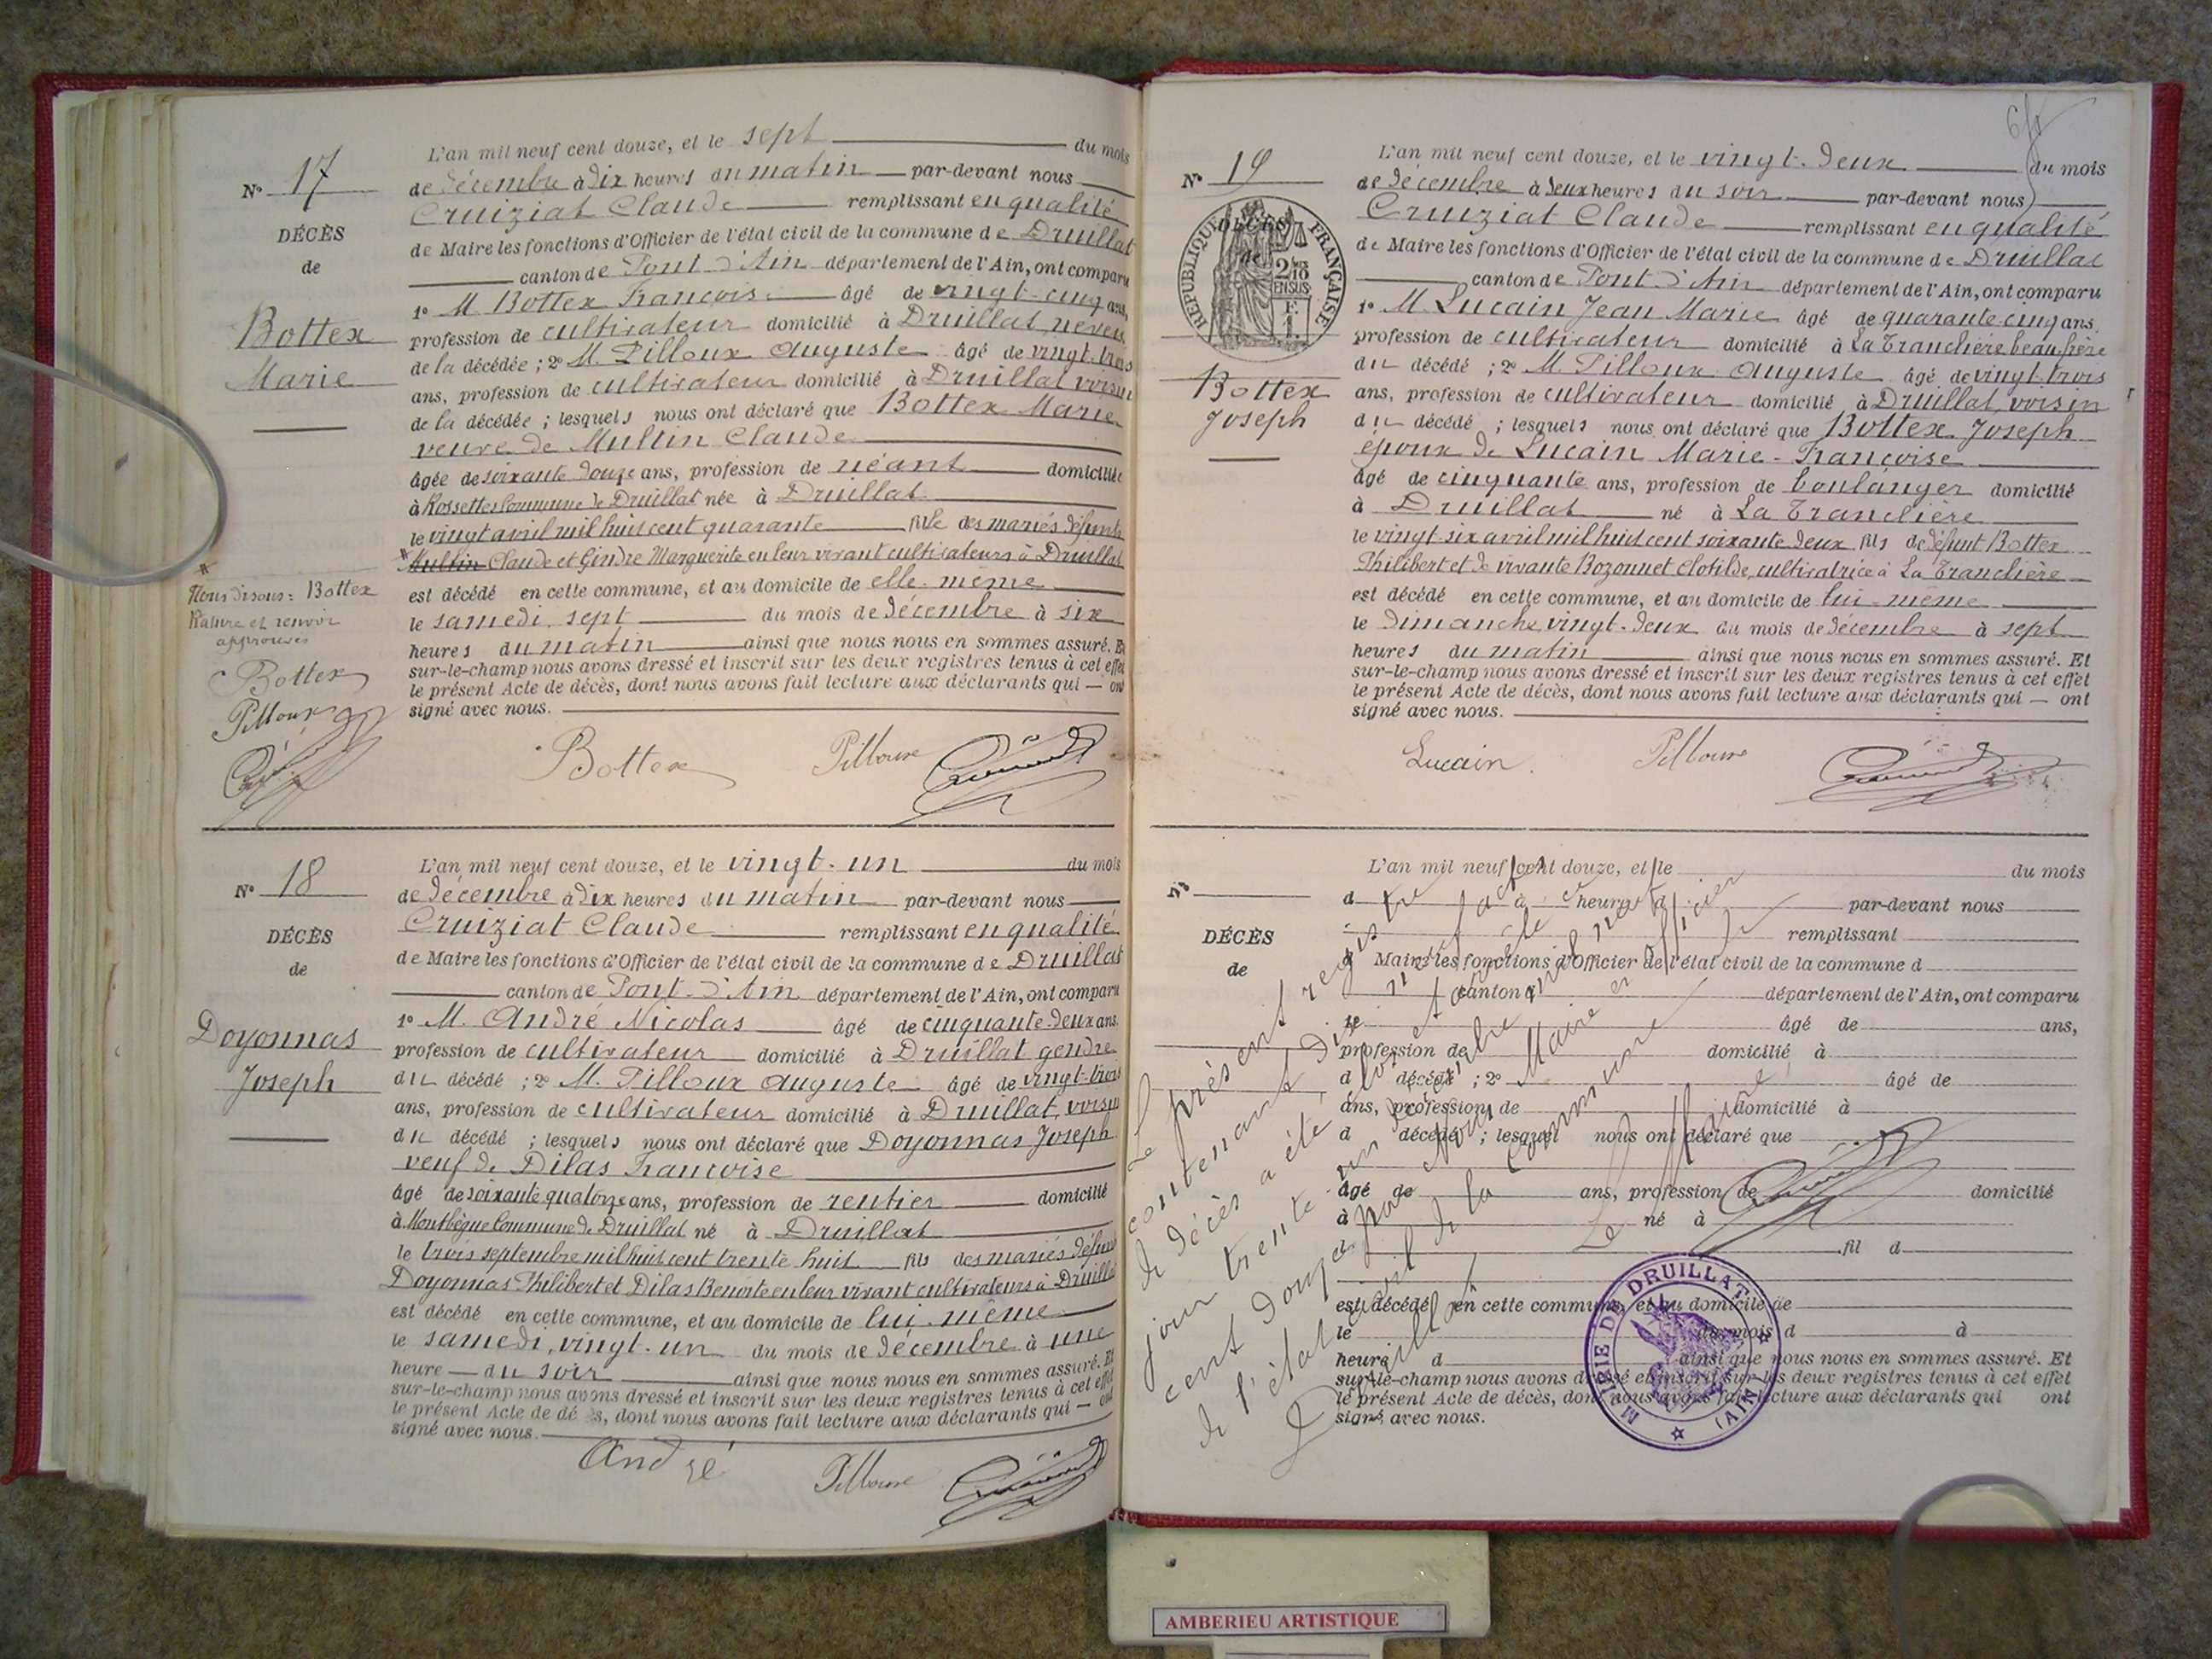 N° 17
DÉCÈS
de
Bottex
Marie
L'an mil neuf cent douze, et le sept du mois
de décembre à dix heures du matin par-devant nous
Cruiziat Claude remplissant en qualité
de Maire les fonctions d'Officier de l'état civil de la commune de Druillat
canton de Pont-d'Ain département de l'Ain, ont comparu
1° M Bottex François âgé de vingt-cinq ans,
profession de cultivateur domicilié à Druillat, neveu
de la décédée ; 2° M. Pilloux Auguste âgé de vingt-trois
ans, profession de cultivateur domicilié à Druillat voisin
de la décédée ; lesquels nous ont déclaré que Bottex Marie
veuve de Multin Claude
âgée de soixante douze ans, profession de néant domiciliée
à Rossettes Commune de Druillat née à Druillat
le vingt avril mil huit cent quarante fille des mariés défunts
* Multin Claude et Gindre Marguerite en leur vivant cultivateurs à Druillat
est décédé en cette commune, et au domicile de elle-même
le samedi, sept du mois de décembre à six
heures du matin ainsi que nous nous en sommes assuré. Et
sur-le-champ nous avons dressé et inscrit sur les deux registres tenus à cet effet
le présent Acte de décès, dont nous avons fait lecture aux déclarants qui — ont
signé avec nous.
* Nous disons : Bottex
Rature et renvoi
approuvés
Bottex
Pilloux
Bottex Pilloux
N° 18
DÉCÈS
de
Doyonnas
Joseph
L'an mil neuf cent douze, et le vingt-un du mois
de décembre à dix heures du matin par-devant nous
Cruiziat Claude remplissant en qualité
de Maire les fonctions d'Officier de l'état civil de la commune de Druillat
canton de Pont-d'Ain département de l'Ain, ont comparu
1° M. André Nicolas âgé de cinquante-deux ans
profession de cultivateur domicilié à Druillat gendre
du décédé ; 2° M. Pilloux Auguste âgé de vingt-trois
ans, profession de cultivateur domicilié à Druillat, voisin
du décédé ; lesquels nous ont déclaré que Doyonnas Joseph
veuf de Dilas Françoise
âgé de soixante quatorze ans, profession de rentier domicilié
à Montbègue Commune de Druillat né à Druillat
le trois septembre mil huit cent trente huit fils des mariés défunts
Doyonnas Philibert et Dilas Benoite en leur vivant cultivateurs à Druillat
est décédé en cette commune, et au domicile de lui-même
le samedi, vingt-un du mois de décembre à une
heure — du soir ainsi que nous nous en sommes assuré. Et
sur-le-champ nous avons dressé et inscrit sur les deux registres tenus à cet effet
le présent Acte de décès, dont nous avons fait lecture aux déclarants qui — ont
signé avec nous.
André Pilloux
N° 19
DÉCÈS
de
RÉPUBLIQUE FRANÇAISE
2/10 EN SUS
Bottex
Joseph
L'an mil neuf cent douze, et le vingt-deux du mois
de décembre à deux heures du soir par-devant nous
Cruiziat Claude remplissant en qualité
de Maire les fonctions d'Officier de l'état civil de la commune de Druillat
canton de Pont-d'Ain département de l'Ain, ont comparu
1° M. Lucain Jean Marie âgé de quarante-cinq ans,
profession de cultivateur domicilié à La Tranclière beau-frère
du décédé ; 2° M. Pilloux Auguste âgé de vingt-trois
ans, profession de cultivateur domicilié à Druillat, voisin
du décédé ; lesquels nous ont déclaré que Bottex Joseph
époux de Lucain Marie-Françoise
âgé de cinquante ans, profession de boulanger domicilié
à Druillat né à La Tranclière
le vingt-six avril mil huit cent soixante deux fils de défunt Bottex
Philibert et de vivante Bozonnet Clotilde, cultivatrice à La Tranclière
est décédé en cette commune, et au domicile de lui-même
le dimanche, vingt-deux du mois de décembre à sept
heures du matin ainsi que nous nous en sommes assuré. Et
sur-le-champ nous avons dressé et inscrit sur les deux registres tenus à cet effet
le présent Acte de décès, dont nous avons fait lecture aux déclarants qui — ont
signé avec nous.
Lucain Pilloux
N°
DÉCÈS
de
L'an mil neuf cent douze, et le du mois
d à heure d par-devant nous
remplissant
d Maire les fonctions d'Officier de l'état civil de la commune d
canton d département de l'Ain, ont comparu
1° âgé de ans,
profession de domicilié à
d décédé ; 2° âgé de
ans, profession de domicilié à
d décédé ; lesquel nous ont déclaré que
âgé de ans, profession de domicilié
à né à
le fil d
est décédé en cette commune, et au domicile de
le du mois d à
heure d ainsi que nous nous en sommes assuré. Et
sur-le-champ nous avons dressé et inscrit sur les deux registres tenus à cet effet
le présent Acte de décès, dont nous avons fait lecture aux déclarants qui ont
signé avec nous.
Le présent registre
contenant dix neuf actes
de décès a été clos et arrêté ce
jour trente-un décembre mil neuf
cent douze par Nous Maire et officier
de l'état civil de la commune de
Druillat
Le Maire,
MAIRIE DE DRUILLAT (AIN)
AMBERIEU ARTISTIQUE